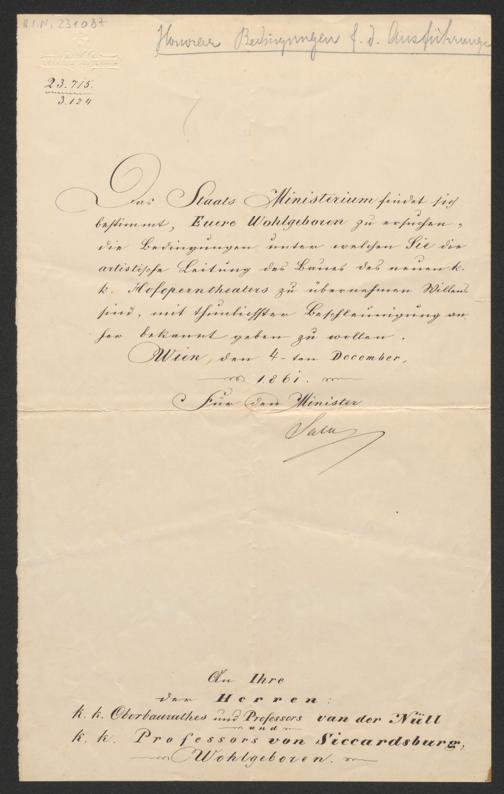 H.I.N. 231087
Honorar Bedingungen f. d. Ausführung
23.715.
3.124
Das Staats Ministerium findet sich
bestimmt, Euere Wohlgeboren zu ersuchen,
die Bedingungen unter welchen Sie die
artistische Leitung des Baues des neuen k.
k. Hofoperntheaters zu übernehmen Willens
sind, mit thunlichster Beschleunigung an
her bekannt geben zu wollen.
Wien, den 4-ten December,
1861.
Für den Minister
An Ihre
der Herren:
k. k. Oberbaurathes und Professors van der Nüll
und
k. k. Professors von Siccardsburg,
Wohlgeboren.